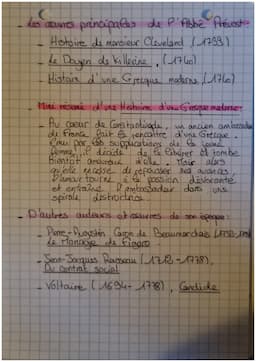 - Les œuvres principales de l'Abbé Prévost
- Histoire de monsieur Cleveland (1733)
- Le Doyen de Killerine, (1740)
- Histoire d'une Grecque moderne (1740)
Mini résumé d'une Histoire d'une Grecque moderne
- Au coeur de Constantinople, un ancien ambassadeur
de France fait la rencontre d'une Grecque.
Emu par les supplications de la jeune
femme, il décide de la libérer et tombe
bientôt amoureux d'elle. Mais alors
qu'elle de repousser ses avances,
l'amour tourne à la passion dévorante
et entraîne l'ambassadeur dans une
spirale destructrice.
- D'autres auteurs et oeuvres de son époque:
- Pierre-Augustin Caron de Beaumarchais
Le Mariage de Figaro
- Jean-Jacques Rousseau (1712-1778),
Du contrat social
- Voltaire (1694-1778), Candide